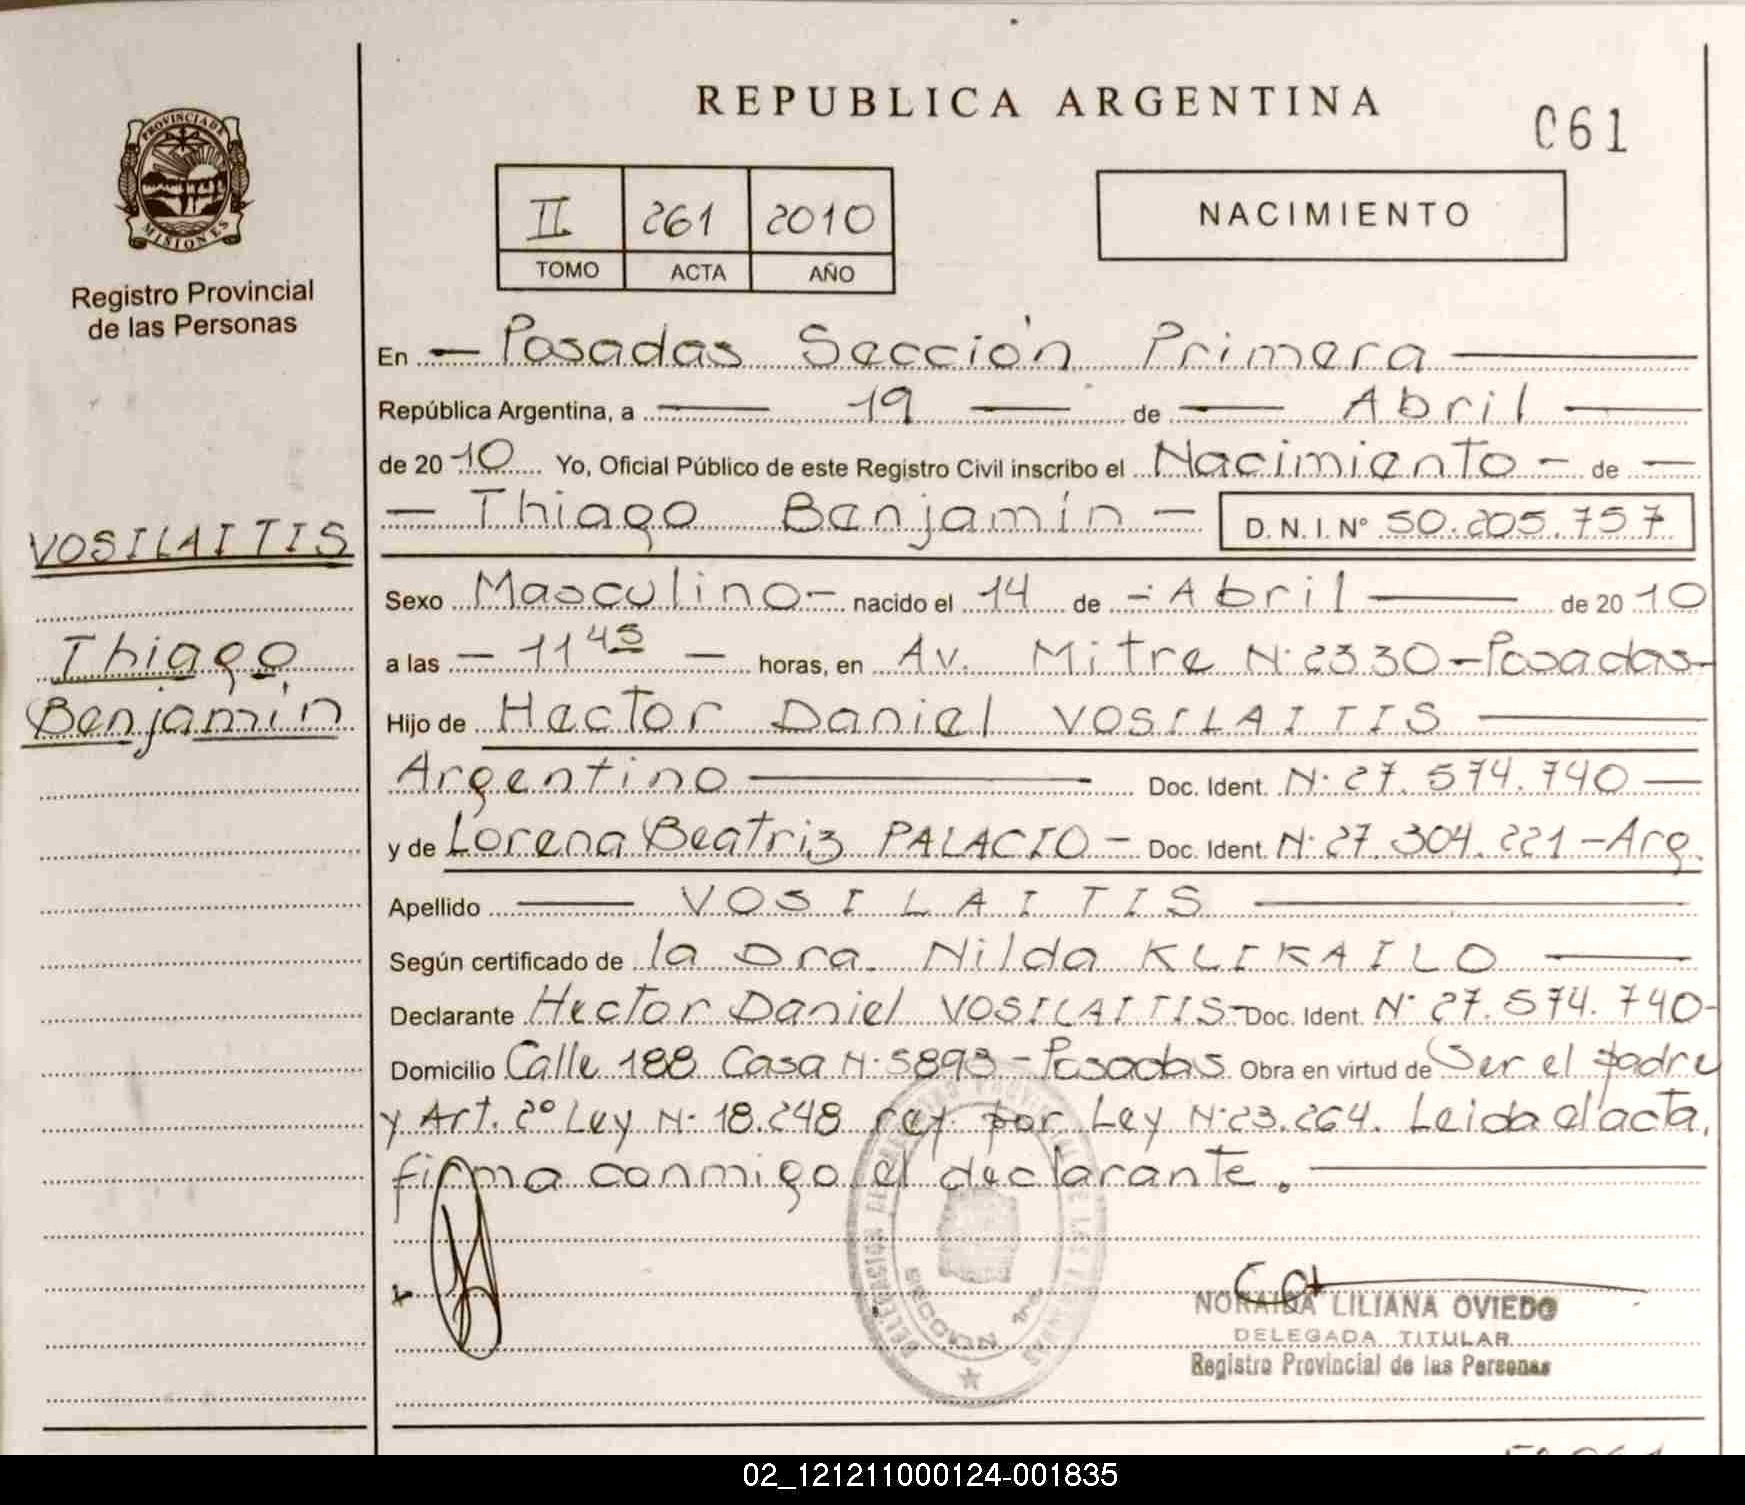 REPUBLICA ARGENTINA
061
PROVINCIA DE
MISIONES
Registro Provincial
de las Personas
II 261 2010
TOMO ACTA AÑO
NACIMIENTO
En Posadas Sección Primera
República Argentina, a 19 de Abril
de 2010 Yo, Oficial Público de este Registro Civil inscribo el Nacimiento - de
Thiago Benjamín - D.N.I. Nº 50.205.757
VOSILAITIS
Thiago
Benjamín
Sexo Masculino - nacido el 14 de - Abril de 2010
a las - 11 45 - horas, en Av. Mitre Nº 2330 - Posadas -
Hijo de Hector Daniel VOSILAITIS
Argentino Doc. Ident. Nº 27.574.740
y de Lorena Beatriz PALACIO - Doc. Ident. Nº 27.304.221 - Arg.
Apellido VOSILAITIS
Según certificado de la Dra. Nilda KLIKAILO
Declarante Hector Daniel VOSILAITIS - Doc. Ident. Nº 27.574.740 -
Domicilio Calle 188 Casa Nº 5893 - Posadas Obra en virtud de Ser el padre
y Art. 2º Ley Nº 18.248 ref por Ley Nº 23.264. Leida el acta,
firma conmigo el declarante.
SECCION
NORAIDA LILIANA OVIEDO
DELEGADA TITULAR
Registro Provincial de las Personas
02_121211000124-001835